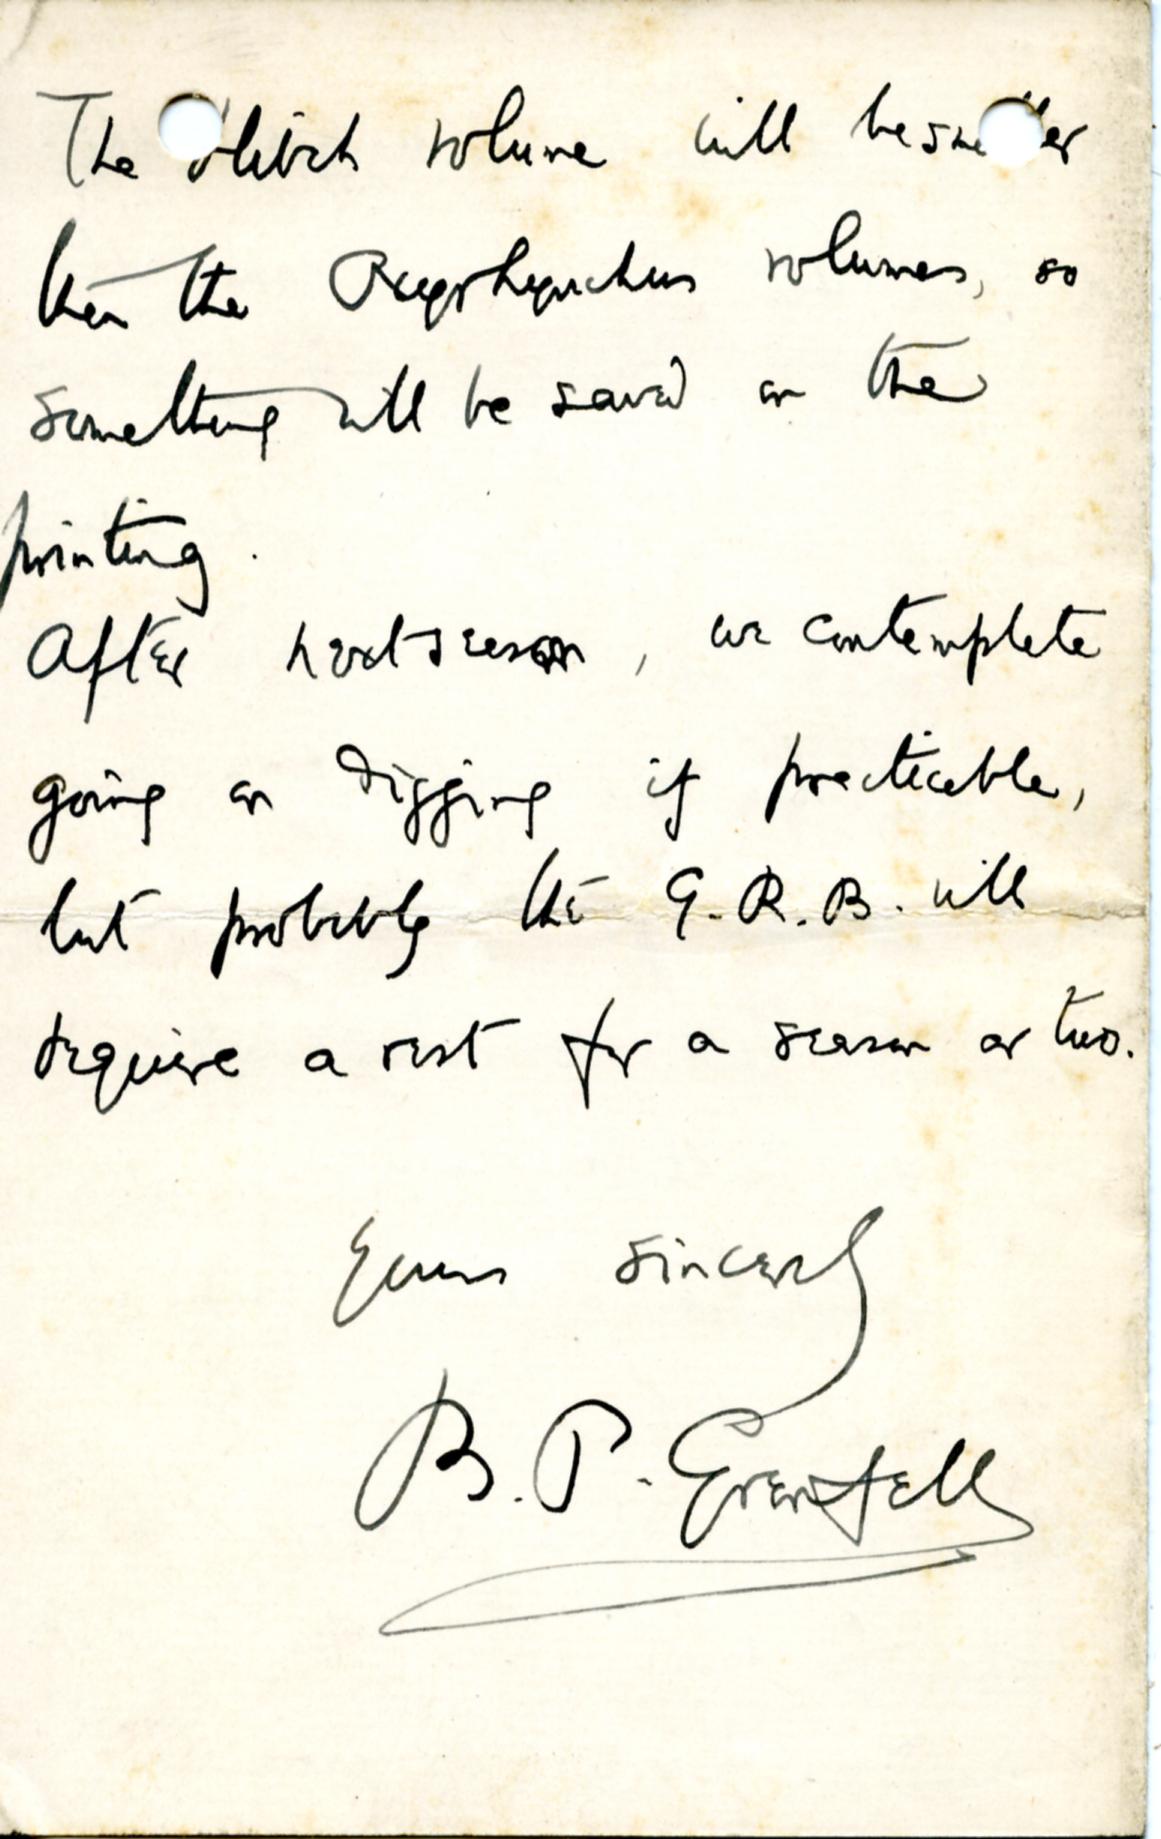 The Hibeh volume will be smaller
than the Oxyrhynchus volumes, so
something will be saved on the
printing.
After next season, we contemplate
going on digging if practicable,
but probably the G.R.B. will
require a rest for a season or two.
Yours sincerely
B. P. Grenfell